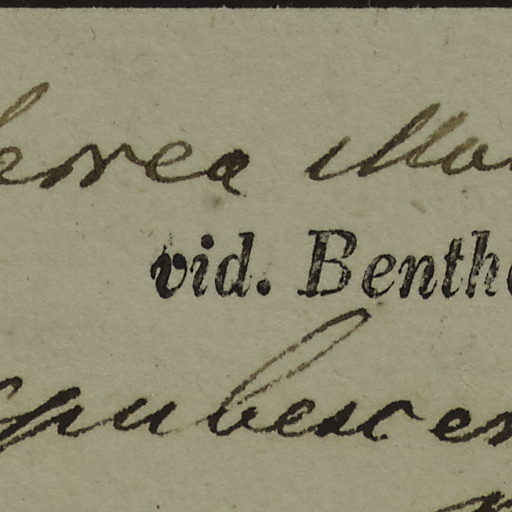 errea Ma
vid. Benth
pubescen